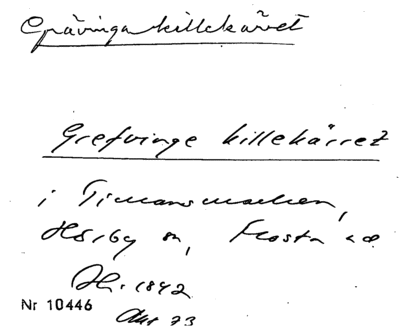 Grävinga killekärret
Grefvinge killekärret
i Timansmarken,
Hörby sn, Frosta hd.
Hi. 1842
Nr 10446
Akt 23